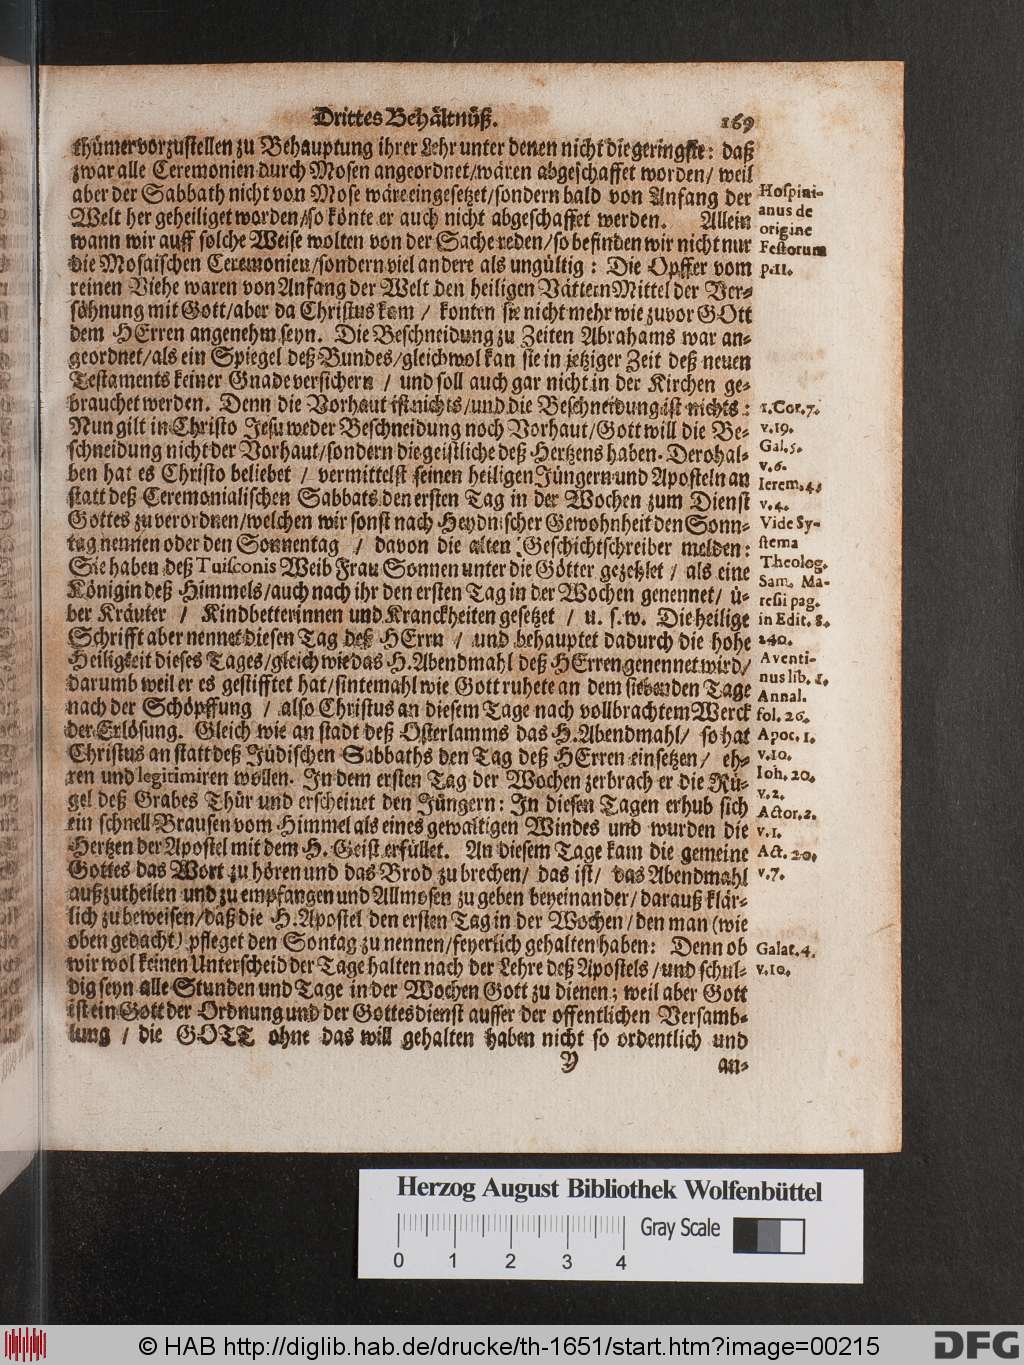 Drittes Behältnüß. 169
thümer vorzustellen zu Behauptung ihrer Lehr unter denen nicht die geringste: daß
zwar alle Ceremonien durch Mosen angeordnet/wären abgeschaffet worden/ weil
aber der Sabbath nicht von Mose wäre eingesetzet/sondern bald von Anfang der
Welt her geheiliget worden/so könte er auch nicht abgeschaffet werden. Allein
wann wir auff solche Weise wolten von der Sache reden/so befinden wir nicht nur
die Mosaischen Ceremonien/sondern viel andere als ungültig: Die Opffer vom
reinen Viehe waren von Anfang der Welt den heiligen Vättern Mittel der Ver-
söhnung mit Gott/aber da Christus kam / konten sie nicht mehr wie zuvor GOtt
dem HErren angenehm seyn. Die Beschneidung zu Zeiten Abrahams war an-
geordnet/als ein Spiegel deß Bundes/gleichwol kan sie in jetziger Zeit deß neuen
Testaments keiner Gnade versichern / und soll auch gar nicht in der Kirchen ge-
brauchet werden. Denn die Vorhaut ist nichts/und die Beschneidung ist nichts:
Nun gilt in Christo Jesu weder Beschneidung noch Vorhaut/Gott will die Be-
schneidung nicht der Vorhaut/sondern die geistliche deß Hertzens haben. Derohal-
ben hat es Christo beliebet / vermittelst seinen heiligen Jüngern und Aposteln an
statt deß Ceremonialischen Sabbats den ersten Tag in der Wochen zum Dienst
Gottes zu verordnen/welchen wir sonst nach Heydnischer Gewohnheit den Sonn-
tag nennen oder den Sonnentag / davon die alten Geschichtschreiber melden:
Sie haben deß Tuisconis Weib Frau Sonnen unter die Götter gezehlet / als eine
Königin deß Himmels/auch nach ihr den ersten Tag in der Wochen genennet/ ü-
ber Kräuter / Kindbetterinnen und Kranckheiten gesetzet / u. s. w. Die heilige
Schrifft aber nennet diesen Tag deß HErrn / und behauptet dadurch die hohe
Heiligkeit dieses Tages/gleich wie das H. Abendmahl deß HErren genennet wird/
darumb weil er es gestifftet hat/sintemahl wie Gott ruhete an dem siebenden Tage
nach der Schöpffung / also Christus an diesem Tage nach vollbrachtem Werck
der Erlösung. Gleich wie an stadt deß Osterlamms das H. Abendmahl/ so hat
Christus an statt deß Jüdischen Sabbaths den Tag deß HErren einsetzen/ eh-
ren und legitimiren wollen. In dem ersten Tag der Wochen zerbrach er die Rü-
gel deß Grabes Thür und erscheinet den Jüngern: In diesen Tagen erhub sich
ein schnell Brausen vom Himmel als eines gewaltigen Windes und wurden die
Hertzen der Apostel mit dem H. Geist erfüllet. An diesem Tage kam die gemeine
Gottes das Wort zu hören und das Brod zu brechen/ das ist/ das Abendmahl
außzutheilen und zu empfangen und Allmosen zu geben beyeinander/darauß klär-
lich zu beweisen/daß die H. Apostel den ersten Tag in der Wochen/den man (wie
oben gedacht) pfleget den Sontag zu nennen/feyerlich gehalten haben: Denn ob
wir wol keinen Unterscheid der Tage halten nach der Lehre deß Apostels/und schul-
dig seyn alle Stunden und Tage in der Wochen Gott zu dienen; weil aber Gott
ist ein Gott der Ordnung und der Gottesdienst ausser der offentlichen Versamb-
lung / die GOTT ohne das will gehalten haben nicht so ordentlich und
Y an-
Hospini-
anus de
origine
Festorum
p. 11.
1. Cor. 7.
v. 19.
Gal. 5.
v. 6.
Ierem. 4.
v. 4.
Vide Sy-
stema
Theolog.
Sam. Ma-
resii pag.
in Edit. 8.
240.
Aventi-
nus lib. 1.
Annal.
fol. 26.
Apoc. 1.
v. 10.
Ioh. 20.
v. 2.
Actor. 2.
v. 1.
Act. 20.
v. 7.
Galat. 4.
v. 10.
Herzog August Bibliothek Wolfenbüttel
Gray Scale
0 1 2 3 4
© HAB http://diglib.hab.de/drucke/th-1651/start.htm?image=00215
DFG